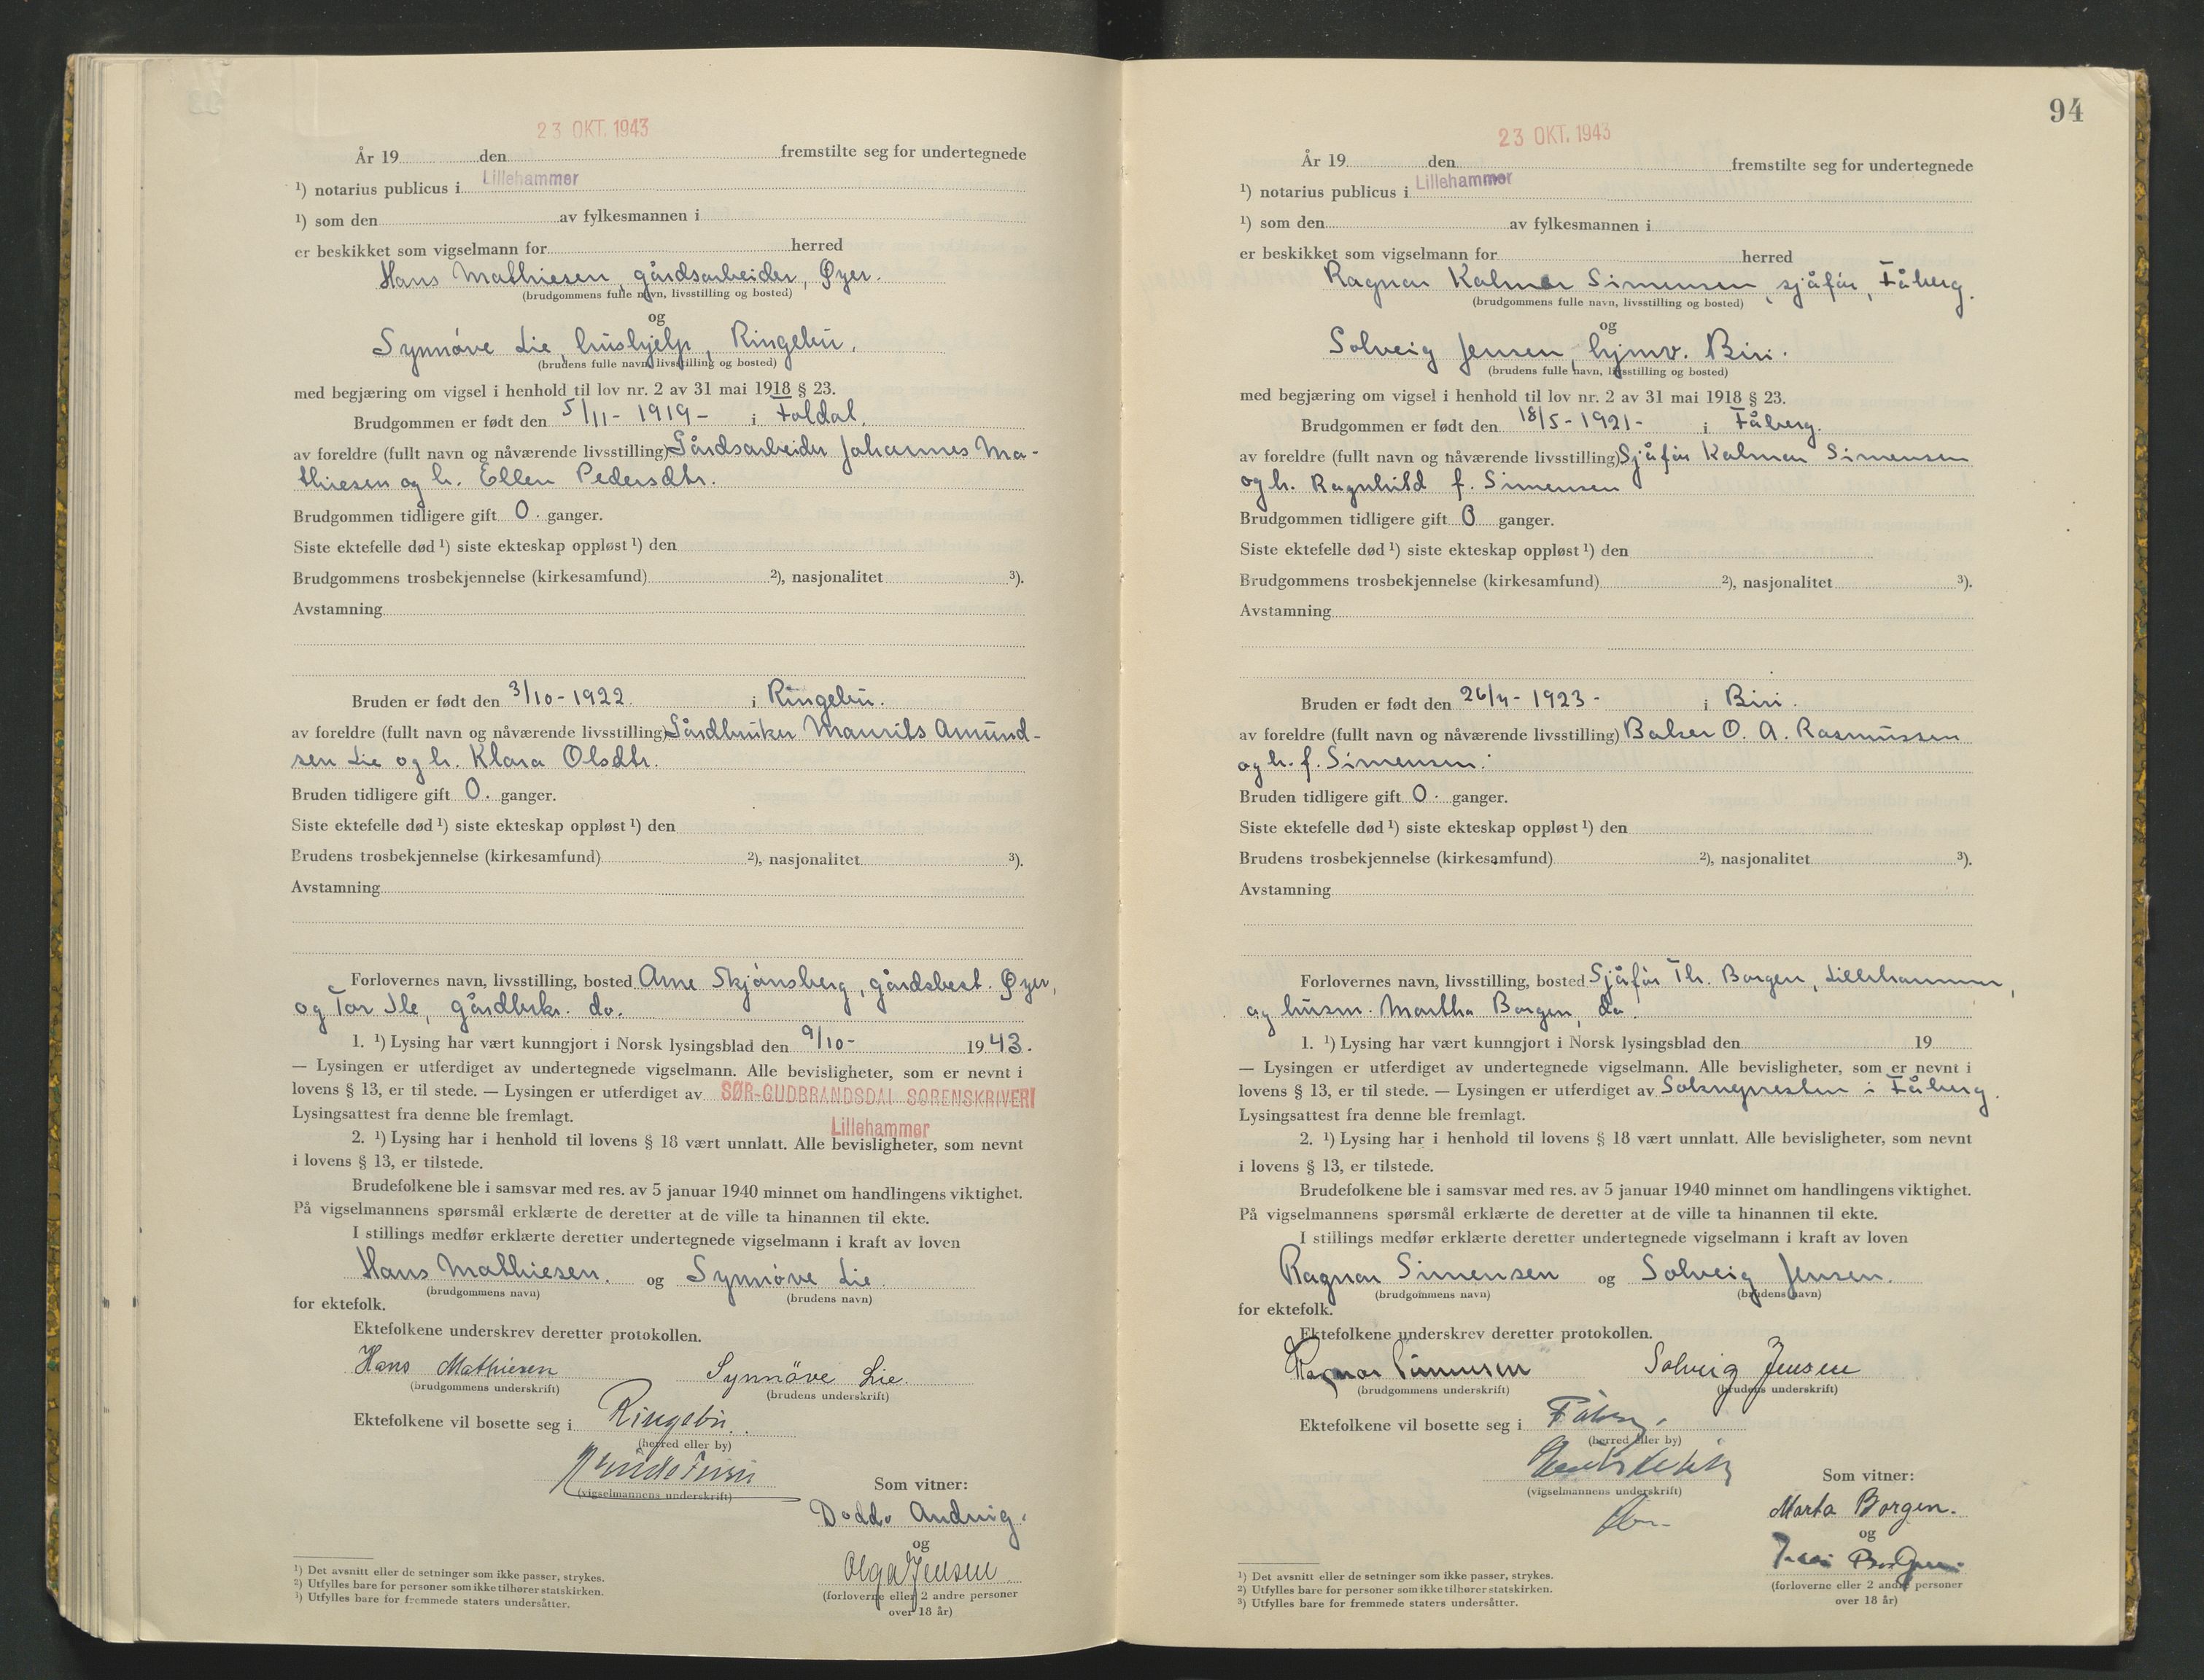 23 OKT. 1943
År 19 den fremstilte seg for undertegnede
¹) notarius publicus i Lillehammer
¹) som den av fylkesmannen i
er beskikket som vigselmann for herred
Hans Mathiesen, gårdsarbeider, Øyer.
(brudgommens fulle navn, livsstilling og bosted)
og
Synnöve Lie, hushjelp, Ringebu.
(brudens fulle navn, livsstilling og bosted)
med begjæring om vigsel i henhold til lov nr. 2 av 31 mai 1918 § 23.
Brudgommen er født den 5/11 - 1919 - i Foldal.
av foreldre (fullt navn og nåværende livsstilling) Gårdsarbeider Johannes Ma-
thiesen og h. Ellen Pedersdtr.
Brudgommen tidligere gift 0. ganger.
Siste ektefelle død ¹) siste ekteskap oppløst ¹) den
Brudgommens trosbekjennelse (kirkesamfund) ²), nasjonalitet ³).
Avstamning
Bruden er født den 3/10 - 1922. i Ringebu.
av foreldre (fullt navn og nåværende livsstilling) Gårdbruker Maurits Amund-
sen Lie og h. Klara Olsdtr.
Bruden tidligere gift 0. ganger.
Siste ektefelle død ¹) siste ekteskap oppløst ¹) den
Brudens trosbekjennelse (kirkesamfund) ²), nasjonalitet ³).
Avstamning
Forlovernes navn, livsstilling, bosted Arne Skjönsberg, gårdsbest. Øyer,
og Tor Ile, gårdbrkr. do.
1. ¹) Lysing har vært kunngjort i Norsk lysingsblad den 9/10 - 1943.
— Lysingen er utferdiget av undertegnede vigselmann. Alle bevisligheter, som er nevnt i
lovens § 13, er til stede. — Lysingen er utferdiget av SØR-GUDBRANDSDAL SORENSKRIVERI
Lysingsattest fra denne ble fremlagt.
Lillehammer
2. ¹) Lysing har i henhold til lovens § 18 vært unnlatt. Alle bevisligheter, som nevnt
i lovens § 13, er tilstede.
Brudefolkene ble i samsvar med res. av 5 januar 1940 minnet om handlingens viktighet.
På vigselmannens spørsmål erklærte de deretter at de ville ta hinannen til ekte.
I stillings medfør erklærte deretter undertegnede vigselmann i kraft av loven
Hans Mathiesen. og Synnöve Lie.
(brudgommens navn) (brudens navn)
for ektefolk.
Ektefolkene underskrev deretter protokollen.
Hans Mathiesen Synnöve Lie.
(brudgommens underskrift) (brudens underskrift)
Ektefolkene vil bosette seg i Ringebu.
(herred eller by)
(vigselmannens underskrift)
Som vitner:
Doddo Andvig.
og
Olga Jensen
(forloverne eller 2 andre personer
over 18 år)
¹) Det avsnitt eller de setninger som ikke passer, strykes.
²) Utfylles bare for personer som ikke tilhører statskirken.
³) Utfylles bare for fremmede staters undersåtter.
94
23 OKT. 1943
År 19 den fremstilte seg for undertegnede
¹) notarius publicus i Lillehammer
¹) som den av fylkesmannen i
er beskikket som vigselmann for herred
Ragnar Kalmar Simensen, sjåför, Fåberg.
(brudgommens fulle navn, livsstilling og bosted)
og
Solveig Jensen, hjmv. Biri.
(brudens fulle navn, livsstilling og bosted)
med begjæring om vigsel i henhold til lov nr. 2 av 31 mai 1918 § 23.
Brudgommen er født den 18/5 - 1921 - i Fåberg.
av foreldre (fullt navn og nåværende livsstilling) Sjåför Kalmar Simensen
og h. Ragnhild f. Simensen
Brudgommen tidligere gift 0 ganger.
Siste ektefelle død ¹) siste ekteskap oppløst ¹) den
Brudgommens trosbekjennelse (kirkesamfund) ²), nasjonalitet ³).
Avstamning
Bruden er født den 26/4 - 1923 - i Biri.
av foreldre (fullt navn og nåværende livsstilling) Baker O. A. Rasmussen
og h. f. Simensen.
Bruden tidligere gift 0. ganger.
Siste ektefelle død ¹) siste ekteskap oppløst ¹) den
Brudens trosbekjennelse (kirkesamfund) ²), nasjonalitet ³).
Avstamning
Forlovernes navn, livsstilling, bosted Sjåför Th. Borgen, Lillehammer,
og husm. Martha Borgen, do.
1. ¹) Lysing har vært kunngjort i Norsk lysingsblad den 19
— Lysingen er utferdiget av undertegnede vigselmann. Alle bevisligheter, som er nevnt i
lovens § 13, er til stede. — Lysingen er utferdiget av Soknepresten i Fåberg.
Lysingsattest fra denne ble fremlagt.
2. ¹) Lysing har i henhold til lovens § 18 vært unnlatt. Alle bevisligheter, som nevnt
i lovens § 13, er tilstede.
Brudefolkene ble i samsvar med res. av 5 januar 1940 minnet om handlingens viktighet.
På vigselmannens spørsmål erklærte de deretter at de ville ta hinannen til ekte.
I stillings medfør erklærte deretter undertegnede vigselmann i kraft av loven
Ragnar Simensen og Solveig Jensen.
(brudgommens navn) (brudens navn)
for ektefolk.
Ektefolkene underskrev deretter protokollen.
Ragnar Simensen Solveig Jensen
(brudgommens underskrift) (brudens underskrift)
Ektefolkene vil bosette seg i Fåberg.
(herred eller by)
(vigselmannens underskrift)
Som vitner:
Marta Borgen.
og
Borgen
(forloverne eller 2 andre personer
over 18 år)
¹) Det avsnitt eller de setninger som ikke passer, strykes.
²) Utfylles bare for personer som ikke tilhører statskirken.
³) Utfylles bare for fremmede staters undersåtter.